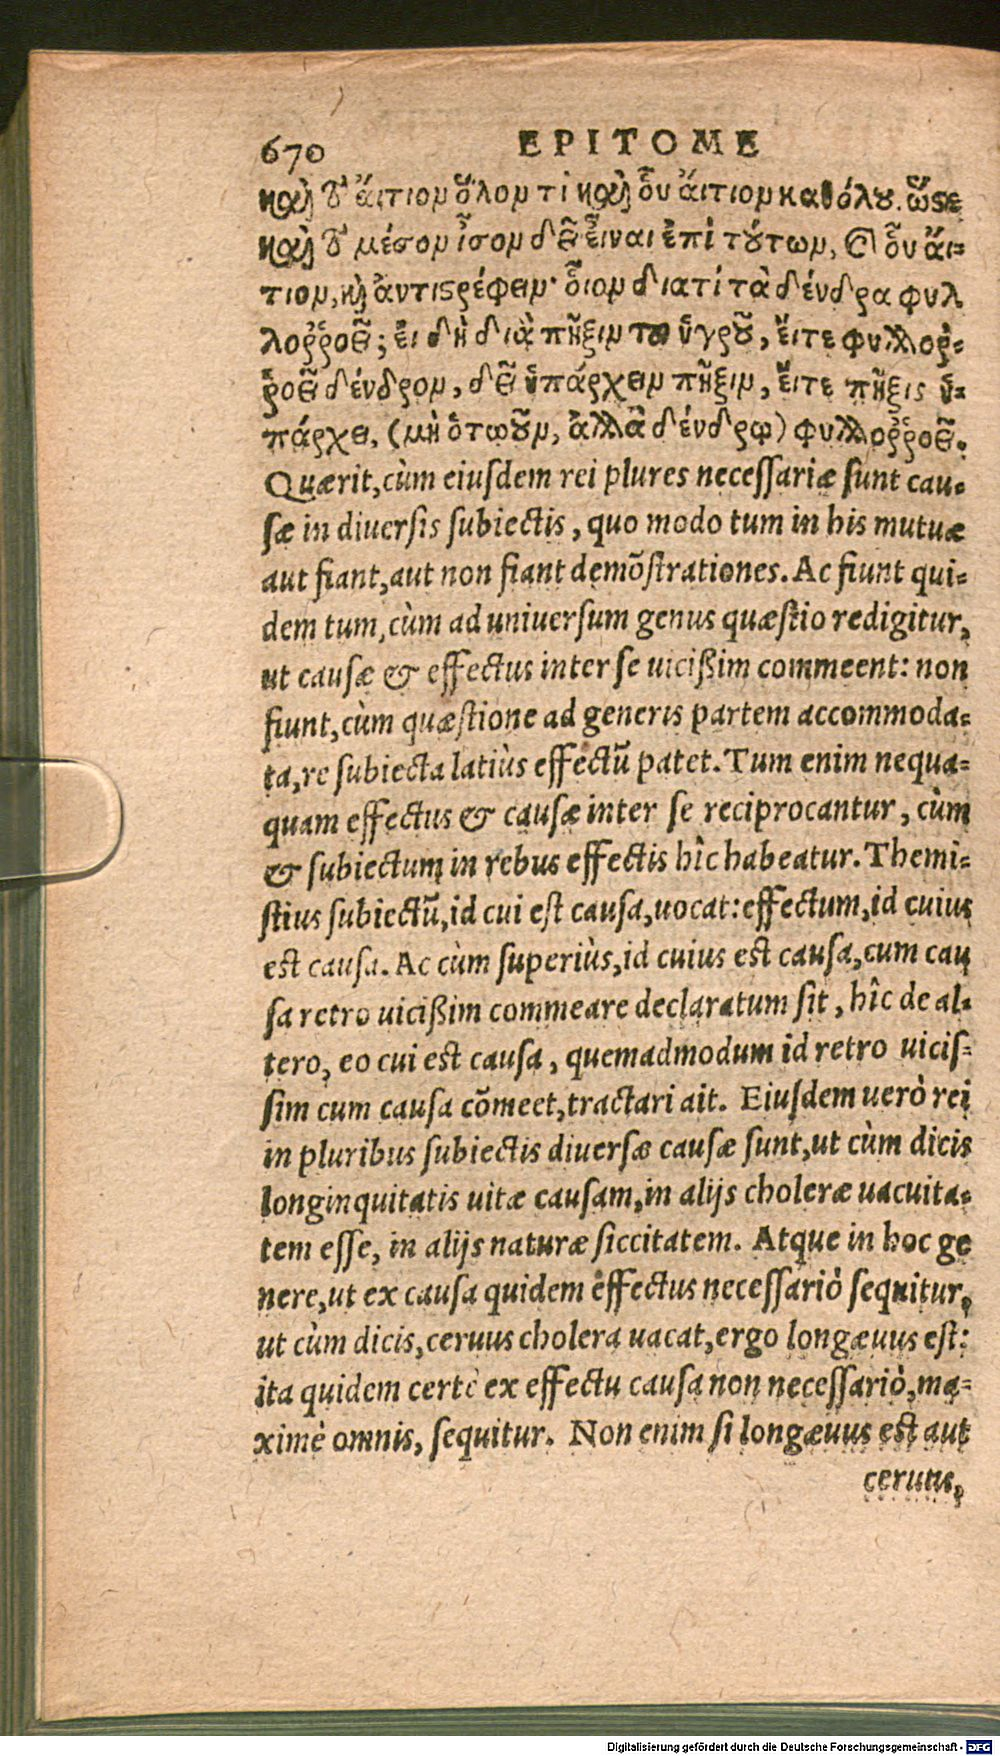 670 EPITOME
καὶ ᾧ ἄιτιον ὅλον τὶ καὶ οὗ ἄιτιον καθόλου. ὥστε
καὶ τὸ μέσον ἴσον δεῖ εἶναι ἐπὶ τούτων, καὶ οὗ ἄι-
τιον, καὶ ἀντιστρέφειν· οἷον διατί τὰ δένδρα φυλ
λοῤῥοεῖ; εἰ δὴ διὰ πῆξιν τοῦ ὑγροῦ, ἔιτε φυλλοῤ-
ῥοεῖ δένδρον, δεῖ ὑπάρχειν πῆξιν, ἔιτε πῆξις ὑ-
πάρχει, (μὴ ὁτωοῦν, ἀλλὰ δένδρῳ) φυλλοῤῥοεῖν.
Quærit, cùm eiusdem rei plures necessariæ sunt cau-
sæ in diuersis subiectis, quo modo tum in his mutuæ
aut fiant, aut non fiant demõstrationes. Ac fiunt qui-
dem tum, cùm ad uniuersum genus quæstio redigitur,
ut causæ & effectus inter se uicißim commeent: non
fiunt, cùm quæstione ad generis partem accommoda-
ta, re subiecta latiùs effectũ patet. Tum enim nequa-
quam effectus & causæ inter se reciprocantur, cùm
& subiectum in rebus effectis hîc habeatur. Themi-
stius subiectũ, id cui est causa, uocat: effectum, id cuius
est causa. Ac cùm superiùs, id cuius est causa, cum cau
sa retro uicißim commeare declaratum sit, hîc de al-
tero, eo cui est causa, quemadmodum id retro uicis-
sim cum causa cõmeet, tractari ait. Eiusdem uerò rei
in pluribus subiectis diuersæ causæ sunt, ut cùm dicis
longinquitatis uitæ causam, in alijs choleræ uacuita-
tem esse, in alijs naturæ siccitatem. Atque in hoc ge
nere, ut ex causa quidem effectus necessariò sequitur,
ut cùm dicis, ceruus cholera uacat, ergo longæuus est:
ita quidem certè ex effectu causa non necessariò, ma-
ximè omnis, sequitur. Non enim si longæuus est aut
ceruus,
Digitalisierung gefördert durch die Deutsche Forschungsgemeinschaft - DFG